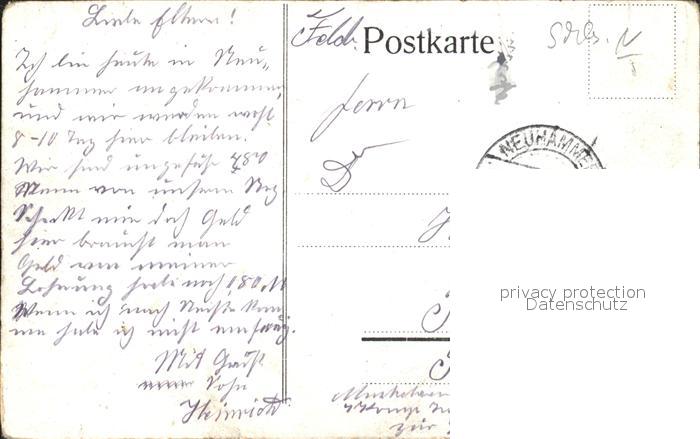 Liebe Eltern!
Ich bin heute in Neu-
hammer angekommen,
und wir werden wohl
8-10 Tag hier bleiben.
Wir sind ungefähr 480
Mann von unserm Reg.
Schickt mir doch Geld
hier braucht man
Geld von meiner
Löhnung habe noch 1,80 M
Wenn ich nach
habe ich nicht
Mit Gruß
Sohn
Heinrich
Feld Postkarte
Herrn
NEUHAMMER
privacy protection
Datenschutz